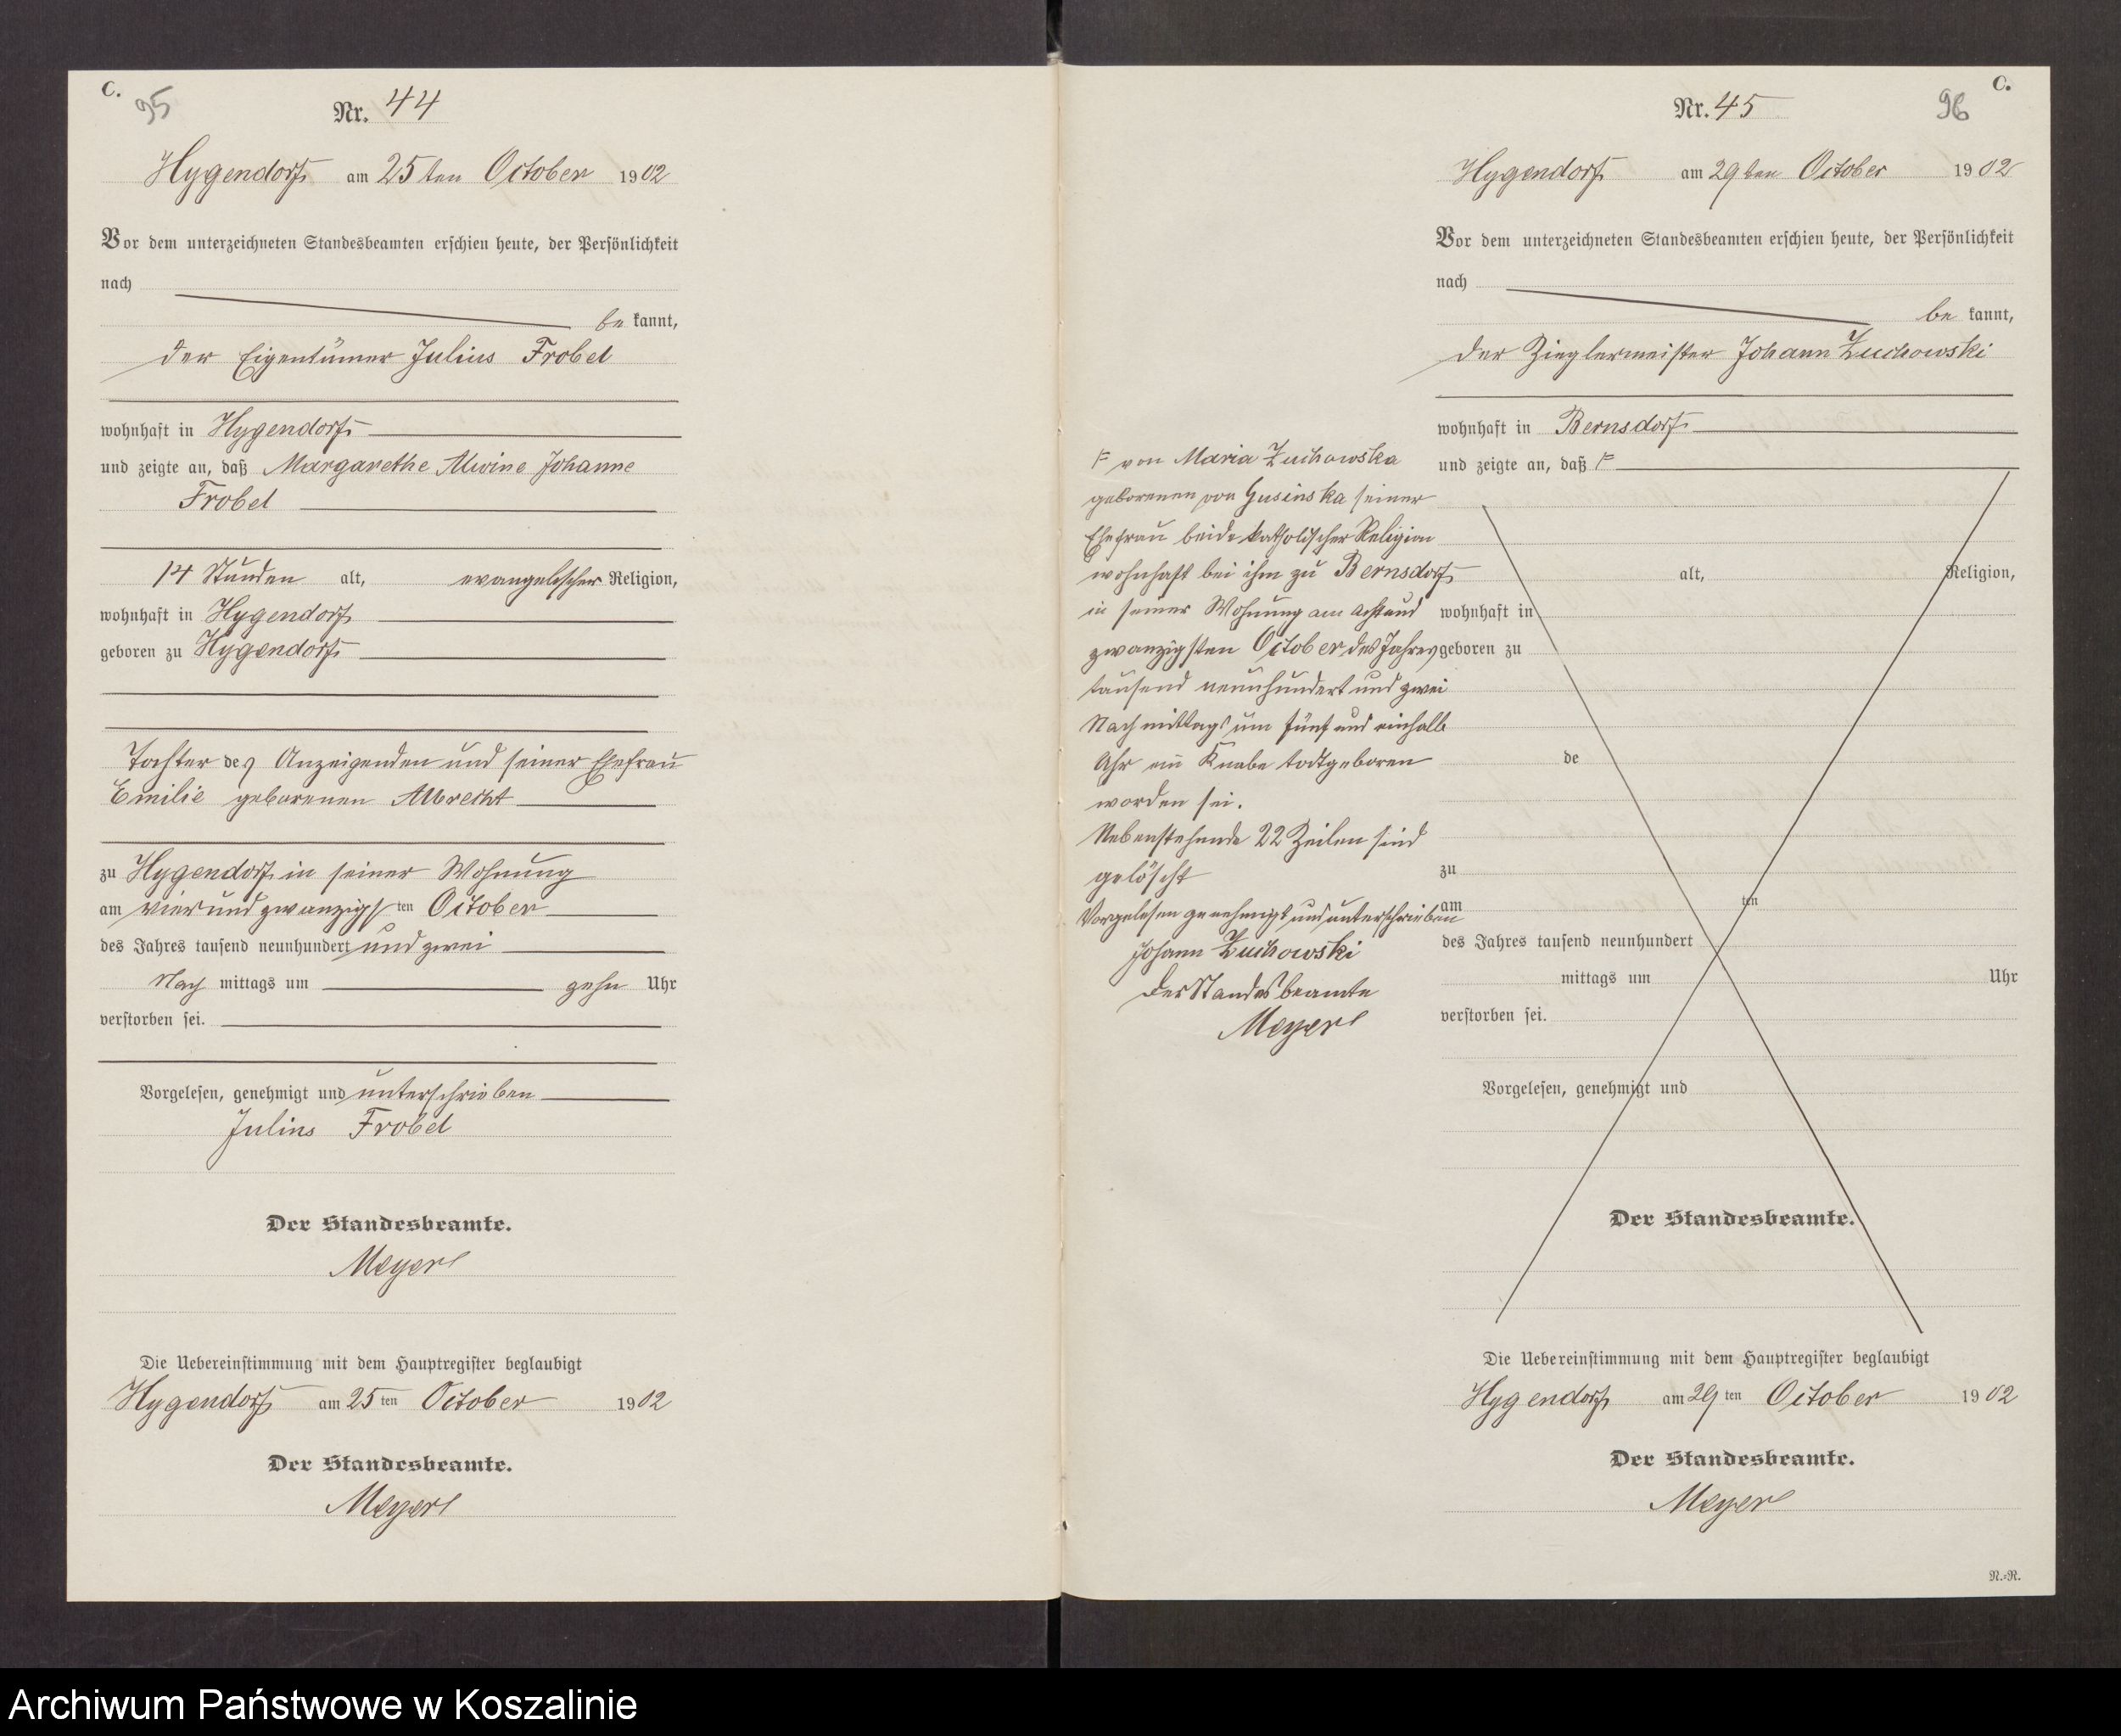 C.
95
Nr. 44
Hygendorf am 25ten October 1902
Vor dem unterzeichneten Standesbeamten erschien heute, der Persönlichkeit
nach
be kannt,
der Eigentümer Julius Frobel
wohnhaft in Hygendorf
und zeigte an, daß Margarethe Alwine Johanne
Frobel
14 Stunden alt, evangelischer Religion,
wohnhaft in Hygendorf
geboren zu Hygendorf
Tochter des Anzeigenden und seiner Ehefrau
Emilie geborenen Albrecht
zu Hygendorf in seiner Wohnung
am vier und zwanzigsten October
des Jahres tausend neunhundert und zwei
Nach mittags um zehn Uhr
verstorben sei.
Vorgelesen, genehmigt und unterschrieben
Julius Frobel
Der Standesbeamte.
Meyer
Die Uebereinstimmung mit dem Hauptregister beglaubigt
Hygendorf am 25 ten October 1902
Der Standesbeamte.
Meyer
C.
96
Nr. 45
Hygendorf am 29ten October 1902
Vor dem unterzeichneten Standesbeamten erschien heute, der Persönlichkeit
nach
be kannt,
der Zieglermeister Johann Zuchowski
wohnhaft in Bernsdorf
und zeigte an, daß F
F von Maria Zuchowska
geborenen von Gusinska seiner
Ehefrau beide katholischer Religion
wohnhaft bei ihm zu Bernsdorf
in seiner Wohnung am acht und
zwanzigsten October des Jahres
tausend neunhundert und zwei
Nachmittags um fünf und einhalb
Uhr ein Knabe todtgeboren
worden sei.
Nebenstehende 22 Zeilen sind
gelöscht
Vorgelesen genehmigt und unterschrieben
Johann Zuchowski
Der Standesbeamte
Meyer
alt, Religion,
wohnhaft in
geboren zu
de
zu
am ten
des Jahres tausend neunhundert
mittags um Uhr
verstorben sei.
Vorgelesen, genehmigt und
Der Standesbeamte.
Die Uebereinstimmung mit dem Hauptregister beglaubigt
Hygendorf am 29 ten October 1902
Der Standesbeamte.
Meyer
N.=N.
Archiwum Państwowe w Koszalinie